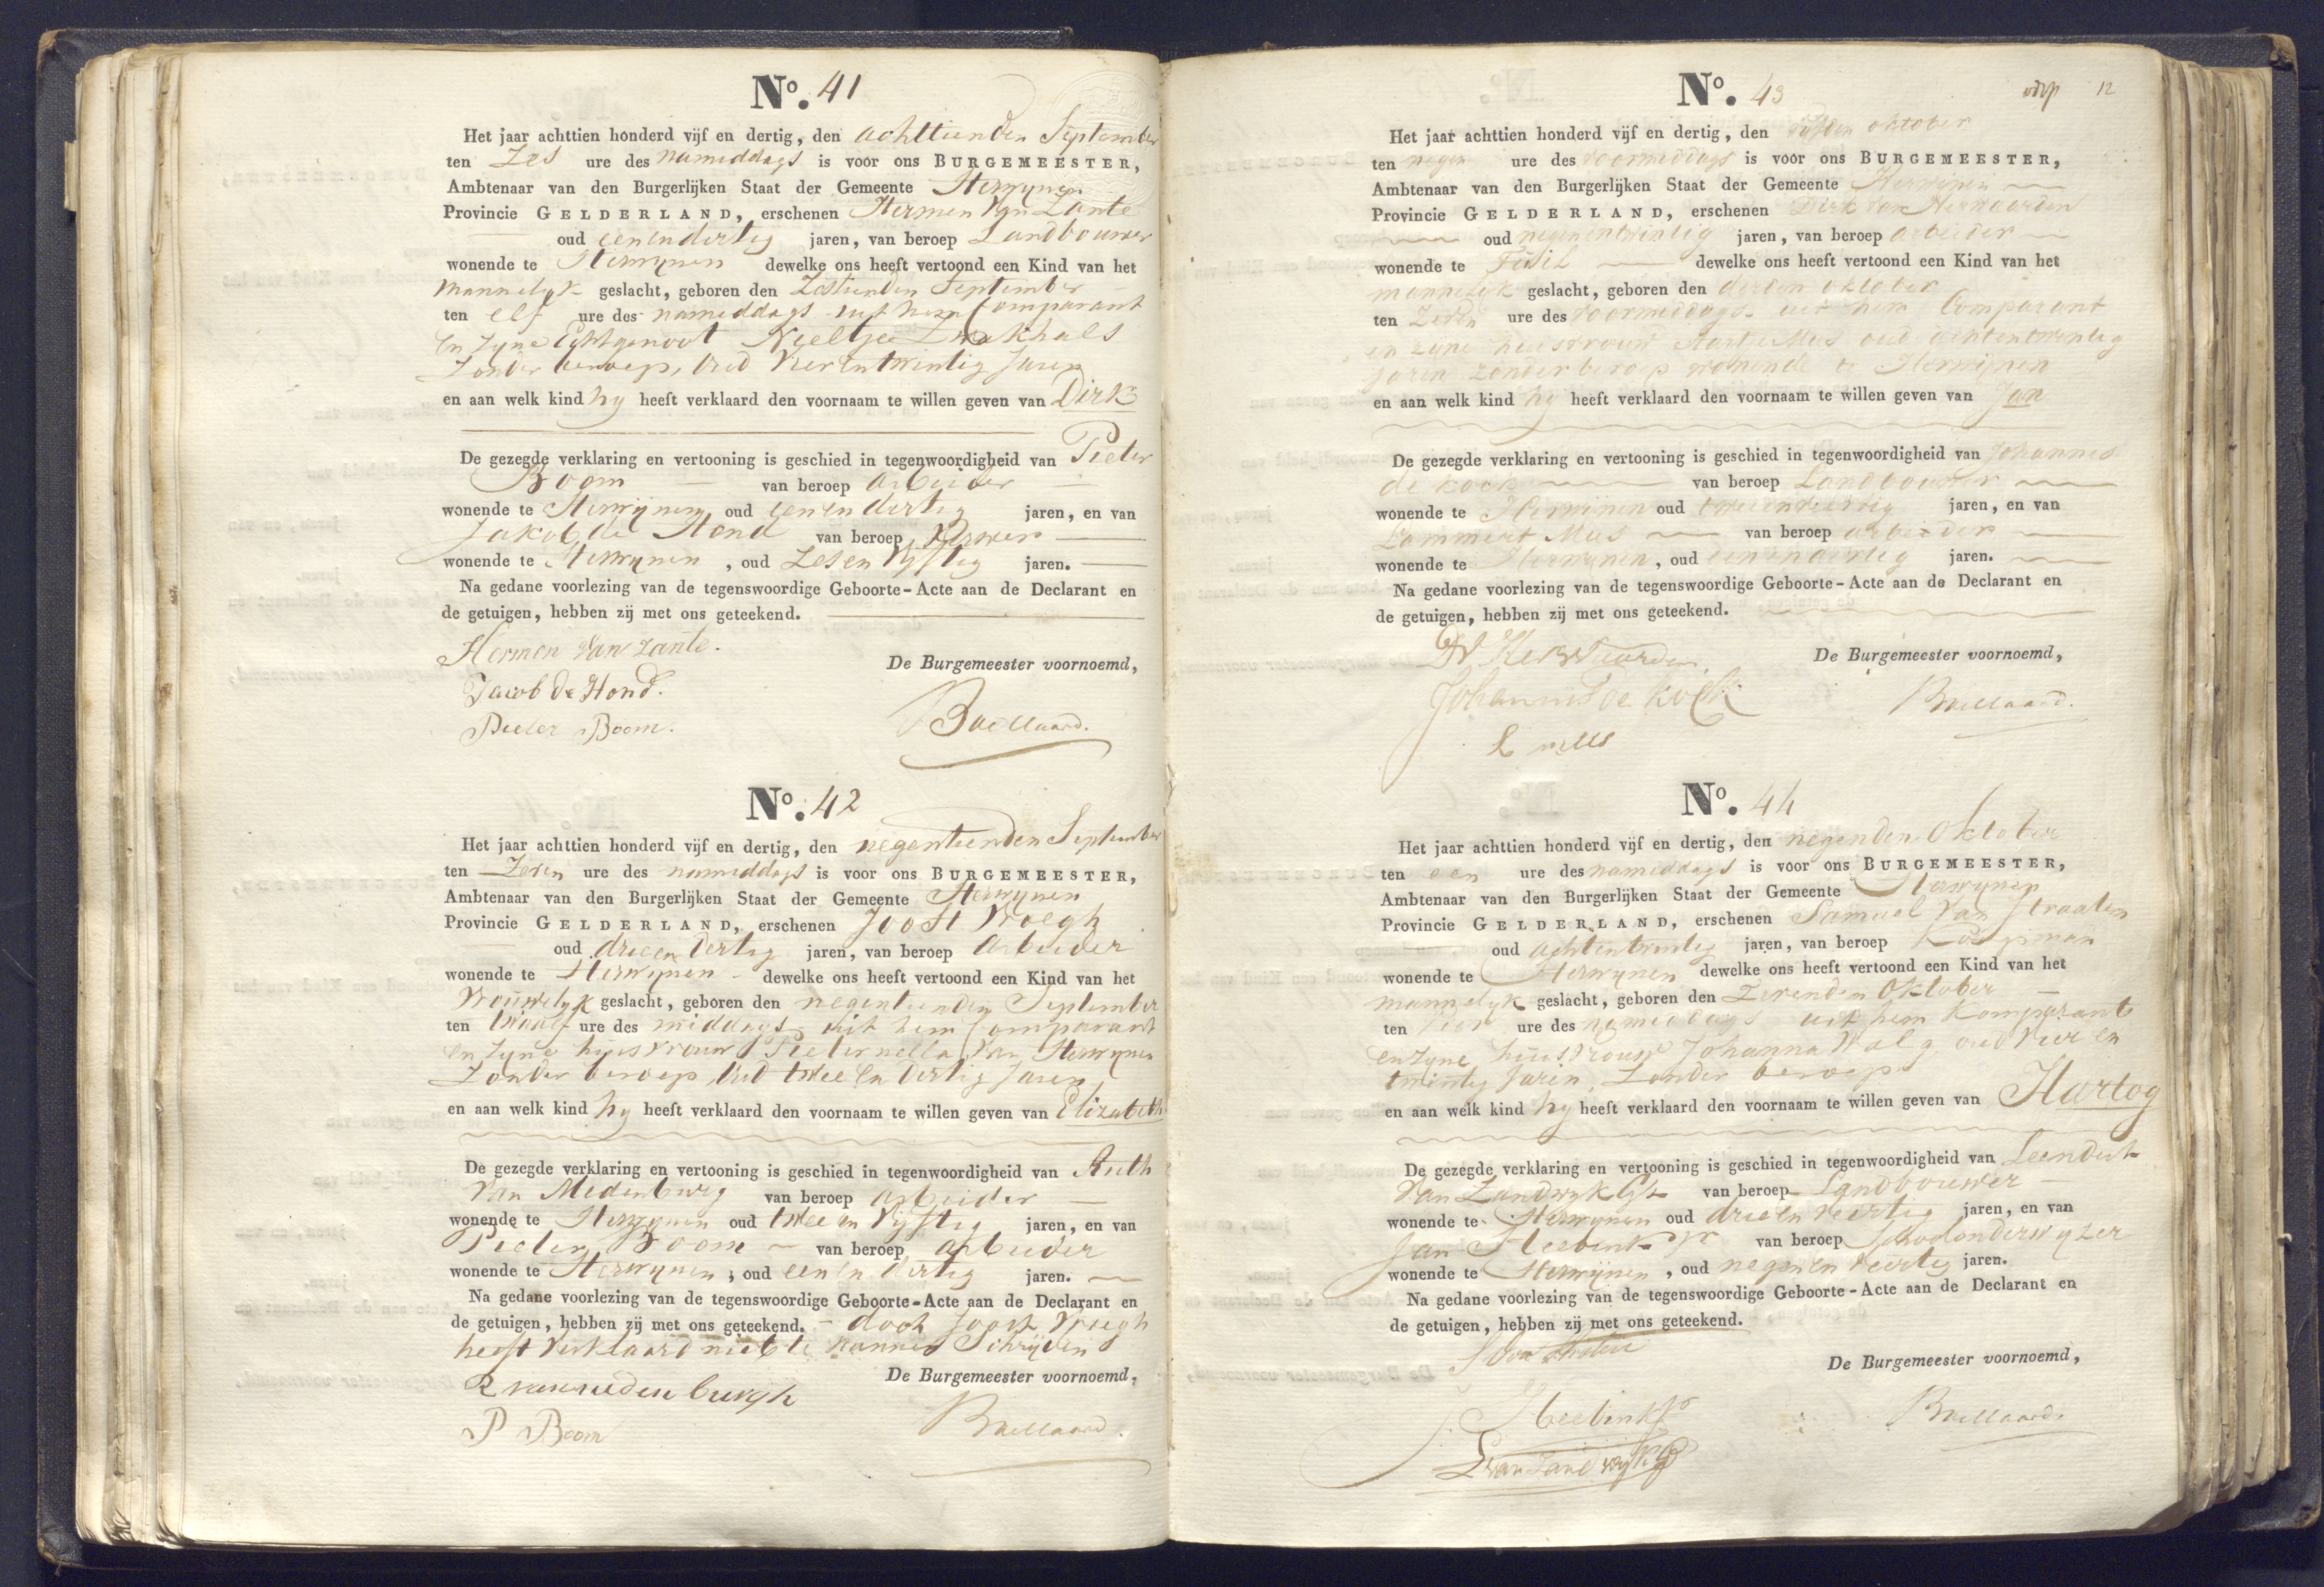 No. 41
Het jaar achttien honderd vijf en dertig, den achttienden September
ten Zes ure des namiddags is voor ons BURGEMEESTER,
Ambtenaar van den Burgerlijken Staat der Gemeente Herwynen
Provincie GELDERLAND, erschenen Hermen Van Zante
oud eenendertig jaren, van beroep Landbouwer
wonende te Herwynen dewelke ons heeft vertoond een Kind van het
Mannelyk geslacht, geboren den Zestienden September
ten elf ure des namiddags uit hem Comparant
en zyne Echtgenoot Neeltje
Zonder beroep, Oud Vierentwintig Jaren
en aan welk kind hy heeft verklaard den voornaam te willen geven van Dirk
De gezegde verklaring en vertooning is geschied in tegenwoordigheid van Pieter
Boom van beroep arbeider
wonende te Herwynen oud eenendertig jaren, en van
Jakob de Hond van beroep
wonende te Herwynen, oud Zesen Vyftig jaren.
Na gedane voorlezing van de tegenswoordige Geboorte-Acte aan de Declarant en
de getuigen, hebben zij met ons geteekend.
Hermen van Zante.
De Burgemeester voornoemd,
Jacob de Hond.
Pieter Boom.
Baellaard.
No. 42
Het jaar achttien honderd vijf en dertig, den negentienden September
ten Zeven ure des namiddags is voor ons BURGEMEESTER,
Ambtenaar van den Burgerlijken Staat der Gemeente Herwynen
Provincie GELDERLAND, erschenen Joost Vroegh
oud drieen dertig jaren, van beroep Arbeider
wonende te Herwynen dewelke ons heeft vertoond een Kind van het
Vrouwelyk geslacht, geboren den negentienden September
ten twaalf ure des middags uit hem Comparant
en zyne huisvrouw Pieternella Van Herwynen
Zonder beroep, Oud twee en dertig Jaren
en aan welk kind hy heeft verklaard den voornaam te willen geven van Elizabeth
De gezegde verklaring en vertooning is geschied in tegenwoordigheid van Ruth
Van Medenburg van beroep arbeider
wonende te Herwynen oud twee en Vyftig jaren, en van
Pieter Boom van beroep arbeider
wonende te Herwynen, oud eenen dertig jaren.
Na gedane voorlezing van de tegenswoordige Geboorte-Acte aan de Declarant en
de getuigen, hebben zij met ons geteekend. - doch Joost Vroegh
heeft verklaard niet te kunnen Schrijven
De Burgemeester voornoemd,
R van medenburgh
P Boom
Baellaard.
No. 43
12
Het jaar achttien honderd vijf en dertig, den vijfden oktober
ten negen ure des voormiddags is voor ons BURGEMEESTER,
Ambtenaar van den Burgerlijken Staat der Gemeente Herwinen
Provincie GELDERLAND, erschenen Dirk van Herwaarden
oud negenentwintig jaren, van beroep arbeider
wonende te dewelke ons heeft vertoond een Kind van het
mannelyk geslacht, geboren den derden oktober
ten Zeven ure des voormiddags uit hem Comparant
en zyne huisvrouw Aartje Mus oud achtentwintig
jaren zonder beroep wonende te Herwijnen
en aan welk kind hy heeft verklaard den voornaam te willen geven van Jan
De gezegde verklaring en vertooning is geschied in tegenwoordigheid van Johannes
de Kock van beroep Landbouwer
wonende te Herwinen oud tweeenveertig jaren, en van
Lammert Mus van beroep arbeider
wonende te Herwynen, oud eenendertig jaren.
Na gedane voorlezing van de tegenswoordige Geboorte-Acte aan de Declarant en
de getuigen, hebben zij met ons geteekend.
DV Herwaarden
De Burgemeester voornoemd,
Johannes de Kock
Baellaard.
L mus
No. 44
Het jaar achttien honderd vijf en dertig, den negenden Oktober
ten een ure des namiddags is voor ons BURGEMEESTER,
Ambtenaar van den Burgerlijken Staat der Gemeente Herwynen
Provincie GELDERLAND, erschenen Samuel Van Straaten
oud achtentwintig jaren, van beroep Koopman
wonende te Herwynen dewelke ons heeft vertoond een Kind van het
mannelyk geslacht, geboren den Zevenden Oktober
ten vier ure des namiddags uit hem Komparant
en zyne huisvrouw Johanna Walg oud Vier en
twintig Jaren, Zonder beroep
en aan welk kind hy heeft verklaard den voornaam te willen geven van Hartog
De gezegde verklaring en vertooning is geschied in tegenwoordigheid van Leendert
Van Zandwyk van beroep Landbouwer
wonende te Herwynen oud drieen veertig jaren, en van
Jan van beroep Schoolonderwyzer
wonende te Herwijnen, oud negenen veertig jaren.
Na gedane voorlezing van de tegenswoordige Geboorte-Acte aan de Declarant en
de getuigen, hebben zij met ons geteekend.
De Burgemeester voornoemd,
Baellaard.
L van Zandwyk